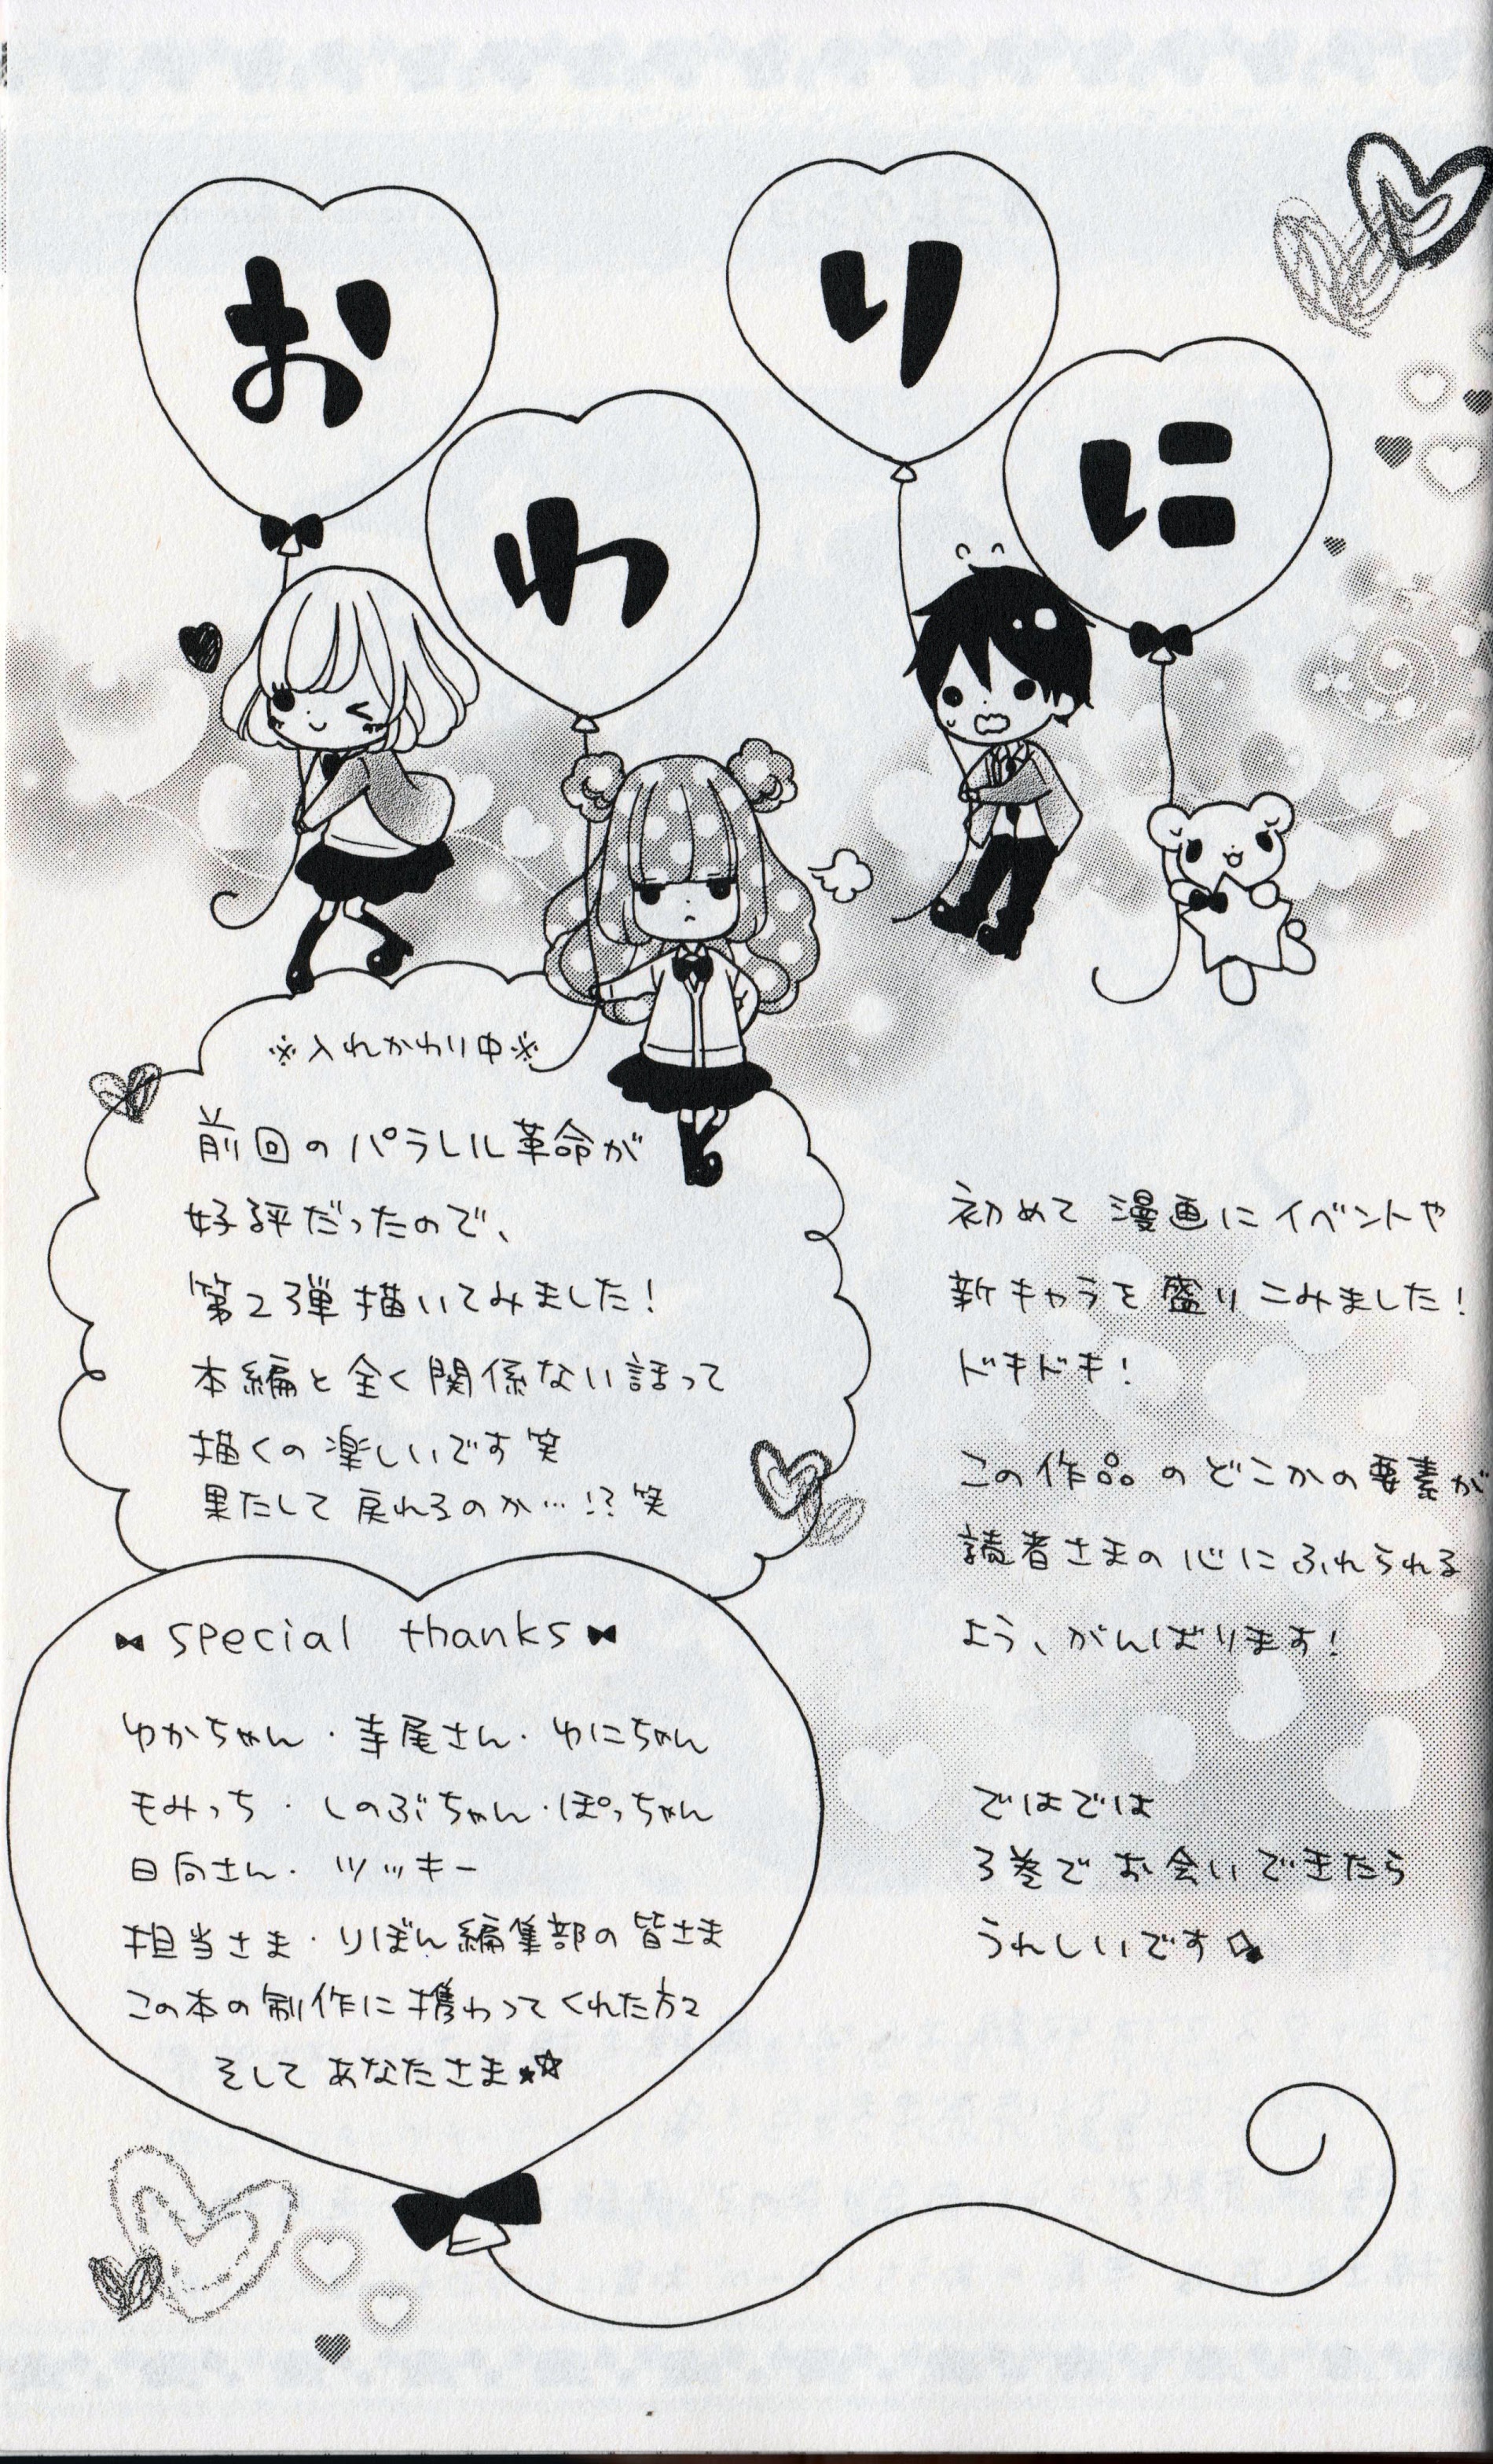 おわりに
※入れかわり中※
前回のパラレル革命が
好評だったので、
第2弾描いてみました!
本編と全く関係ない話って
描くの楽しいです笑
果たして戻れるのか…!?笑
special thanks
ゆかちゃん・寺尾さん・ゆにちゃん
もみっち・しのぶちゃん・ぽっちゃん
日向さん・ツッキー
担当さま・りぼん編集部の皆さま
この本の制作に携わってくれた方々
そしてあなたさま★☆
初めて漫画にイベントや
新キャラを盛りこみました!
ドキドキ!
この作品のどこかの要素が
読者さまの心にふれられる
よう、がんばります!
ではでは
3巻でお会いできたら
うれしいです